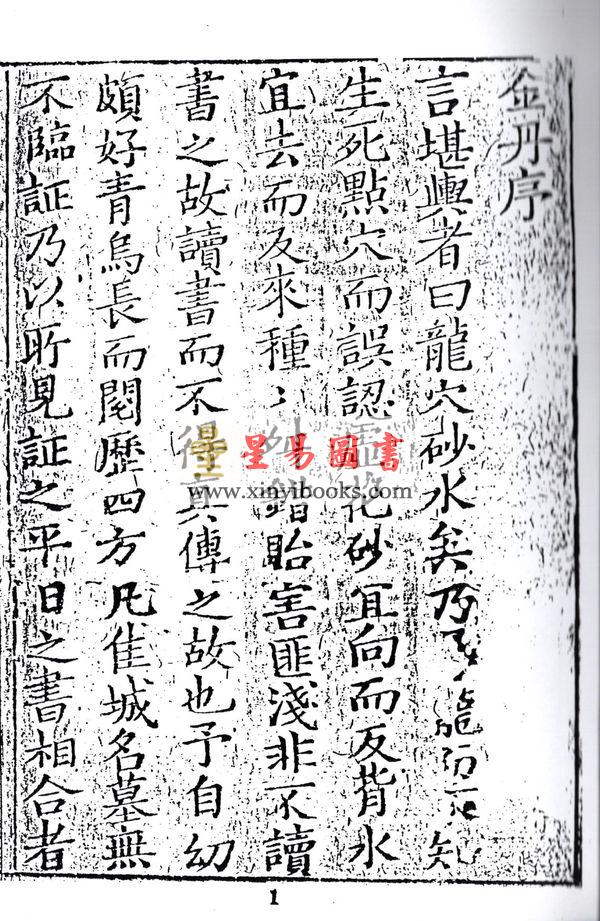 金丹序
言堪輿者曰龍穴砂水矣乃 龍 知
生死點穴而誤認 花砂宜向而反背水
宜去而反來種〻 錯貽害匪淺非不讀
書之故讀書而不得真傳之故也予自幼
頗好青烏長而閱歷四方凡佳城名墓無
不臨証乃以所見証之平日之書相合者
星易圖書
www.xinyibooks.com
1